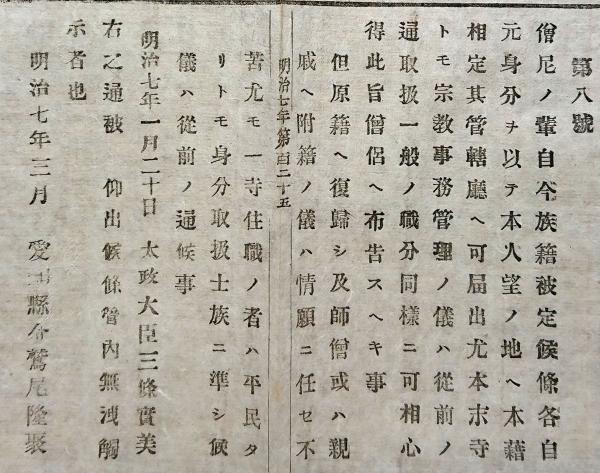 第八號
僧尼ノ輩自今族籍被定候條各自
元身分ヲ以テ本人望ノ地ヘ本籍
相定其管轄廳ヘ可届出尤本末寺
トモ宗教事務管理ノ儀ハ從前ノ
通取扱一般ノ職分同樣ニ可相心
得此旨僧侶ヘ布告スヘキ事
但原籍ヘ復歸シ及師僧或ハ親
戚ヘ附籍ノ儀ハ情願ニ任セ不
明治七年第百二十五
苦尤モ一寺住職ノ者ハ平民タ
リトモ身分取扱士族ニ準シ候
儀ハ從前ノ通候事
明治七年一月二十日 太政大臣三條實美
右之通被 仰出候條管內無洩觸
示者也
明治七年三月 愛知縣令鷲尾隆聚